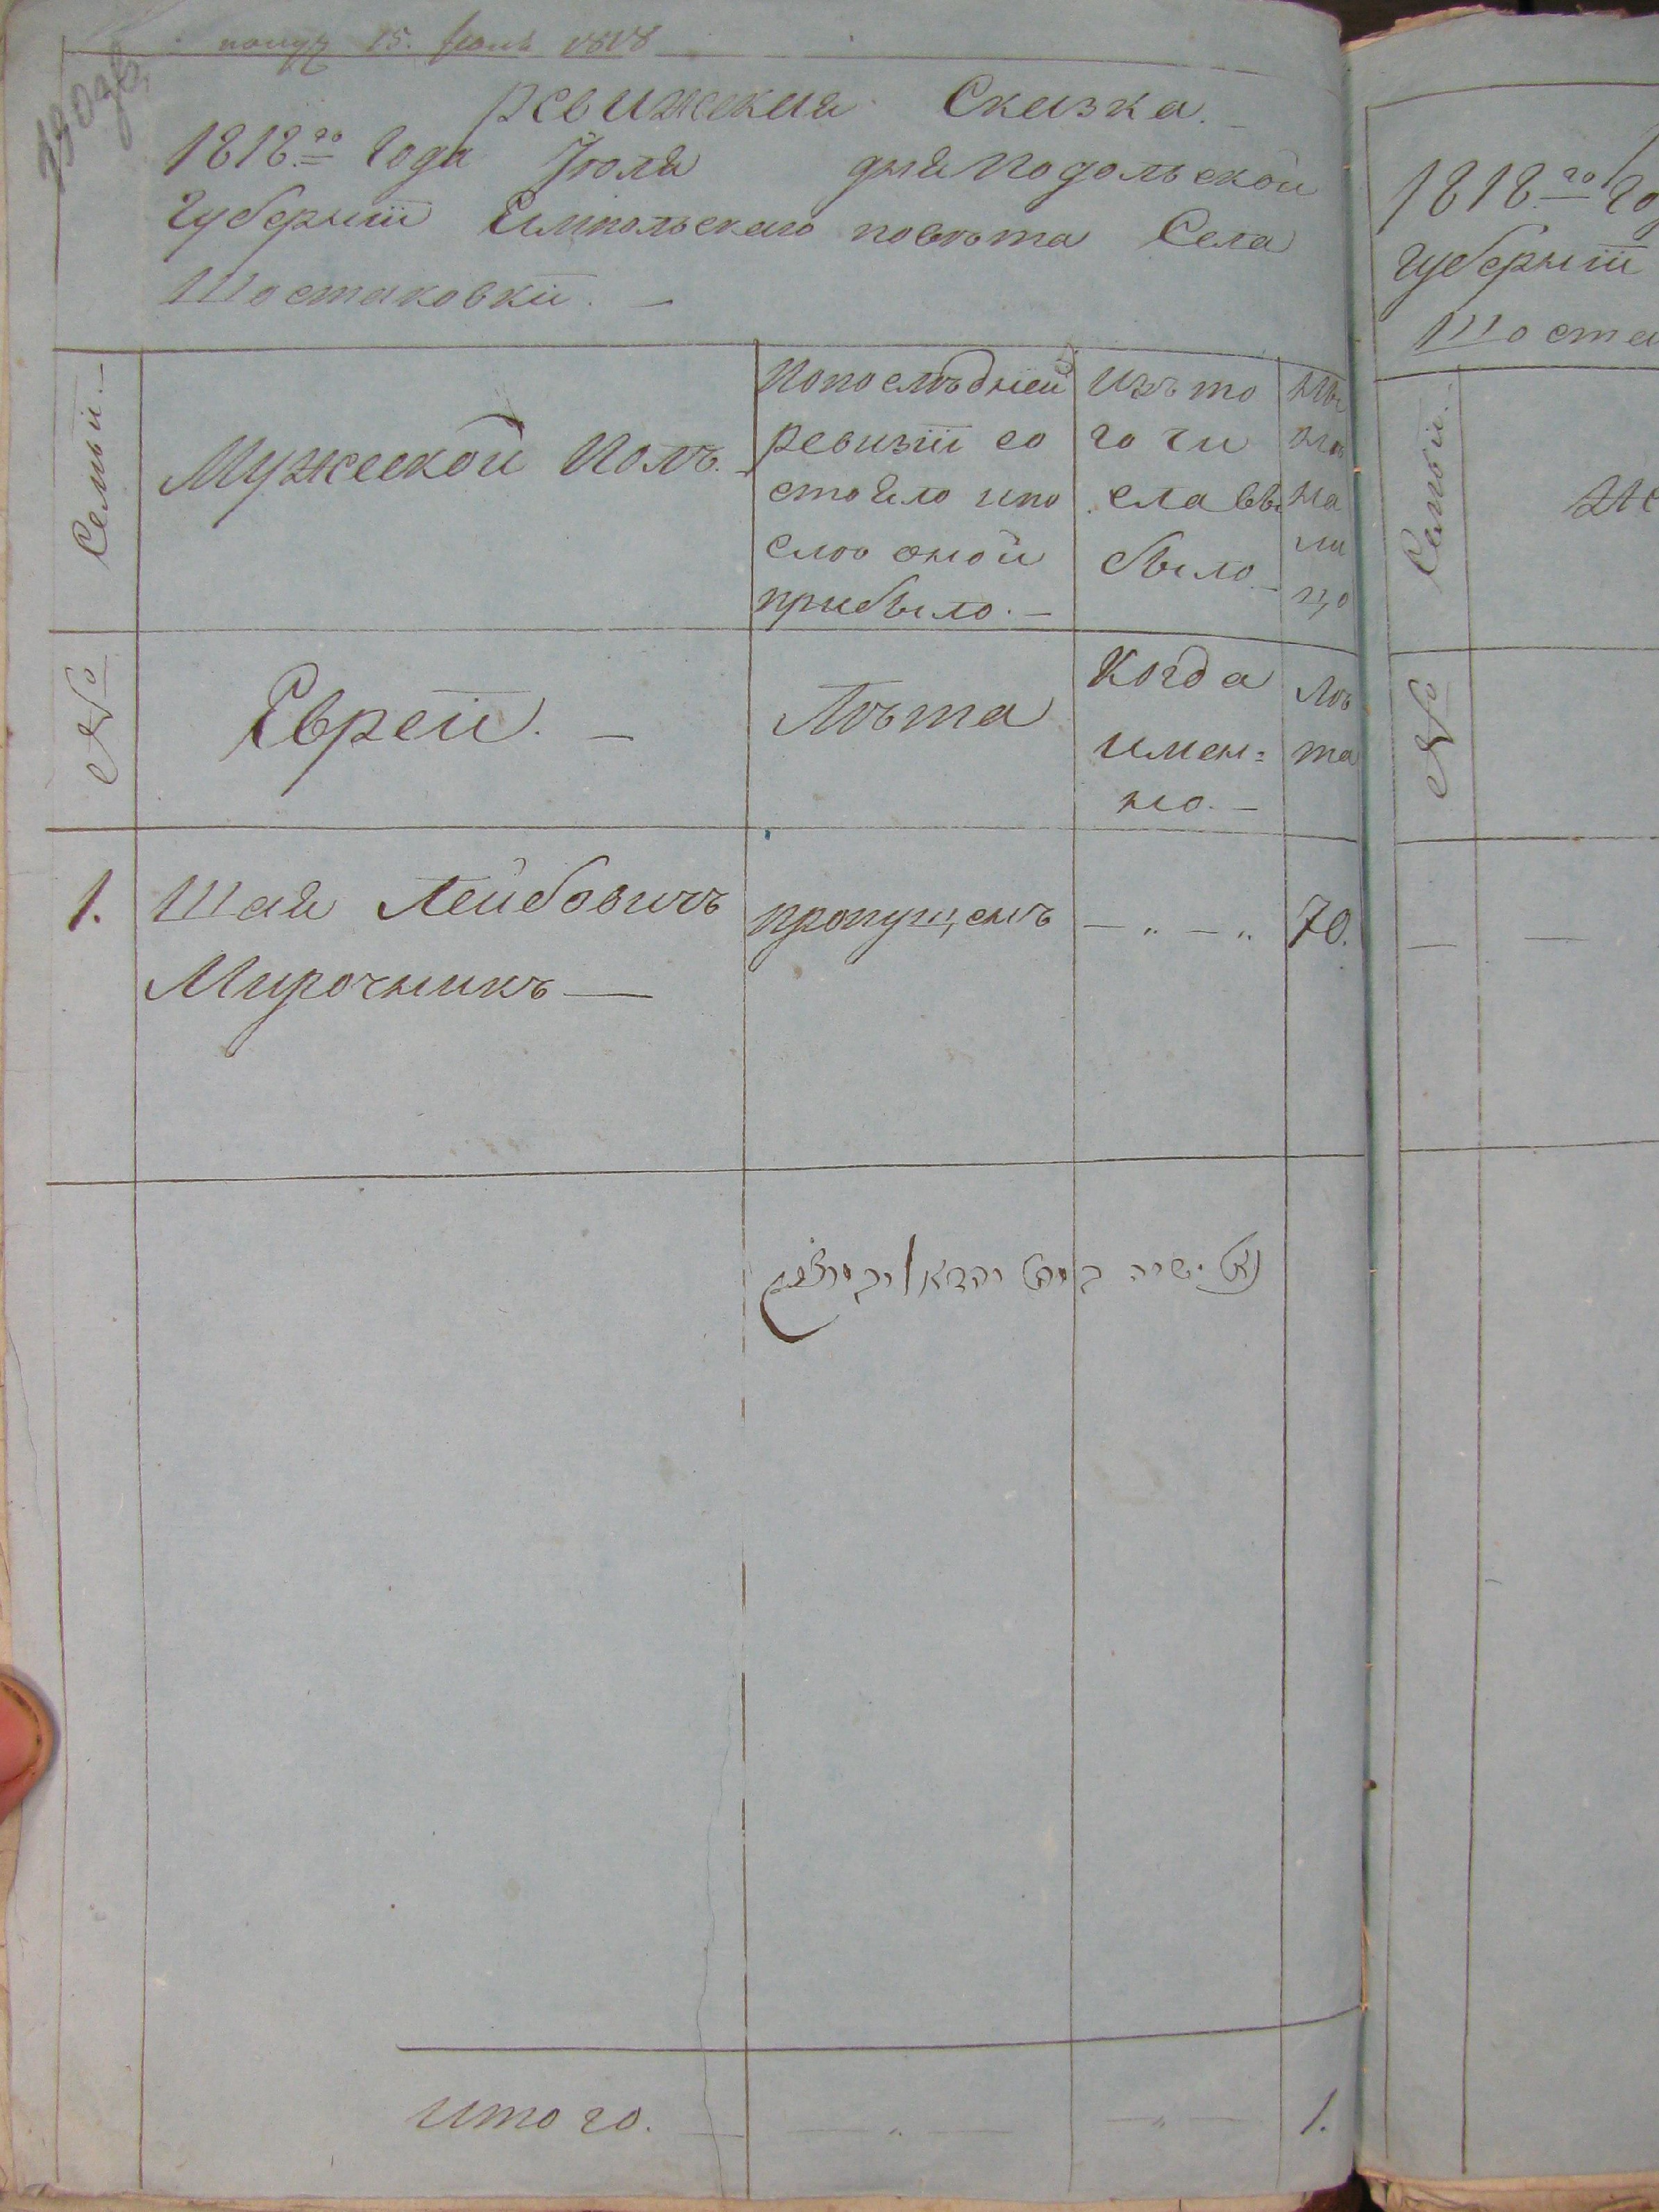 15. 1818
Ревижская Сказка.
1818.го Года Июля дня Подольской
Губернїи Ямпольскаго повѣта Села
Шостаковки. —
Семьи. —
Мужеской Полъ. —
Попослѣдней
ревизїи со
стояло ипо
слѣ оной
прибыло. —
Изъ то
го чи
сла вы
было —
Ны
нѣ
на
ли
цо
№
Евреи. —
Лѣта
Когда
имен=
но. —
Лѣ
та
1.
Шая Лейбовичъ
Мирочникъ —
пропущенъ
— „ — „
70.
Итого. —
— „ —
— „ —
1.
1818.го Го
Губернїи
Шоста
Семьи. —
№